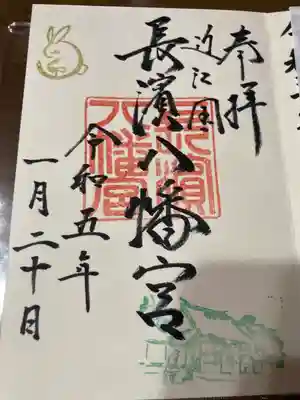 奉拝
近江国
長濱八幡宮
長濱八幡宮
令和五年
一月二十日